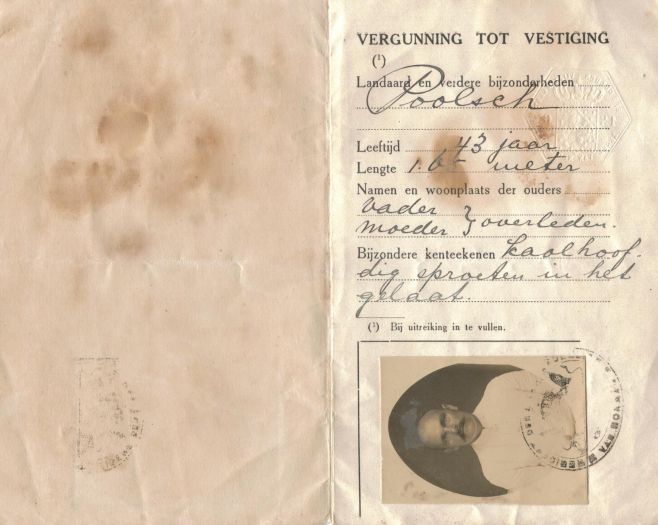 VERGUNNING TOT VESTIGING
(¹)
Landaard en verdere bijzonderheden
Poolsch
Leeftijd 43 jaar
Lengte 1.65 meter
Namen en woonplaats der ouders
Vader
moeder } overleden.
Bijzondere kenteekenen kaalhoof-
dig sproeten in het
gelaat.
(¹) Bij uitreiking in te vullen.